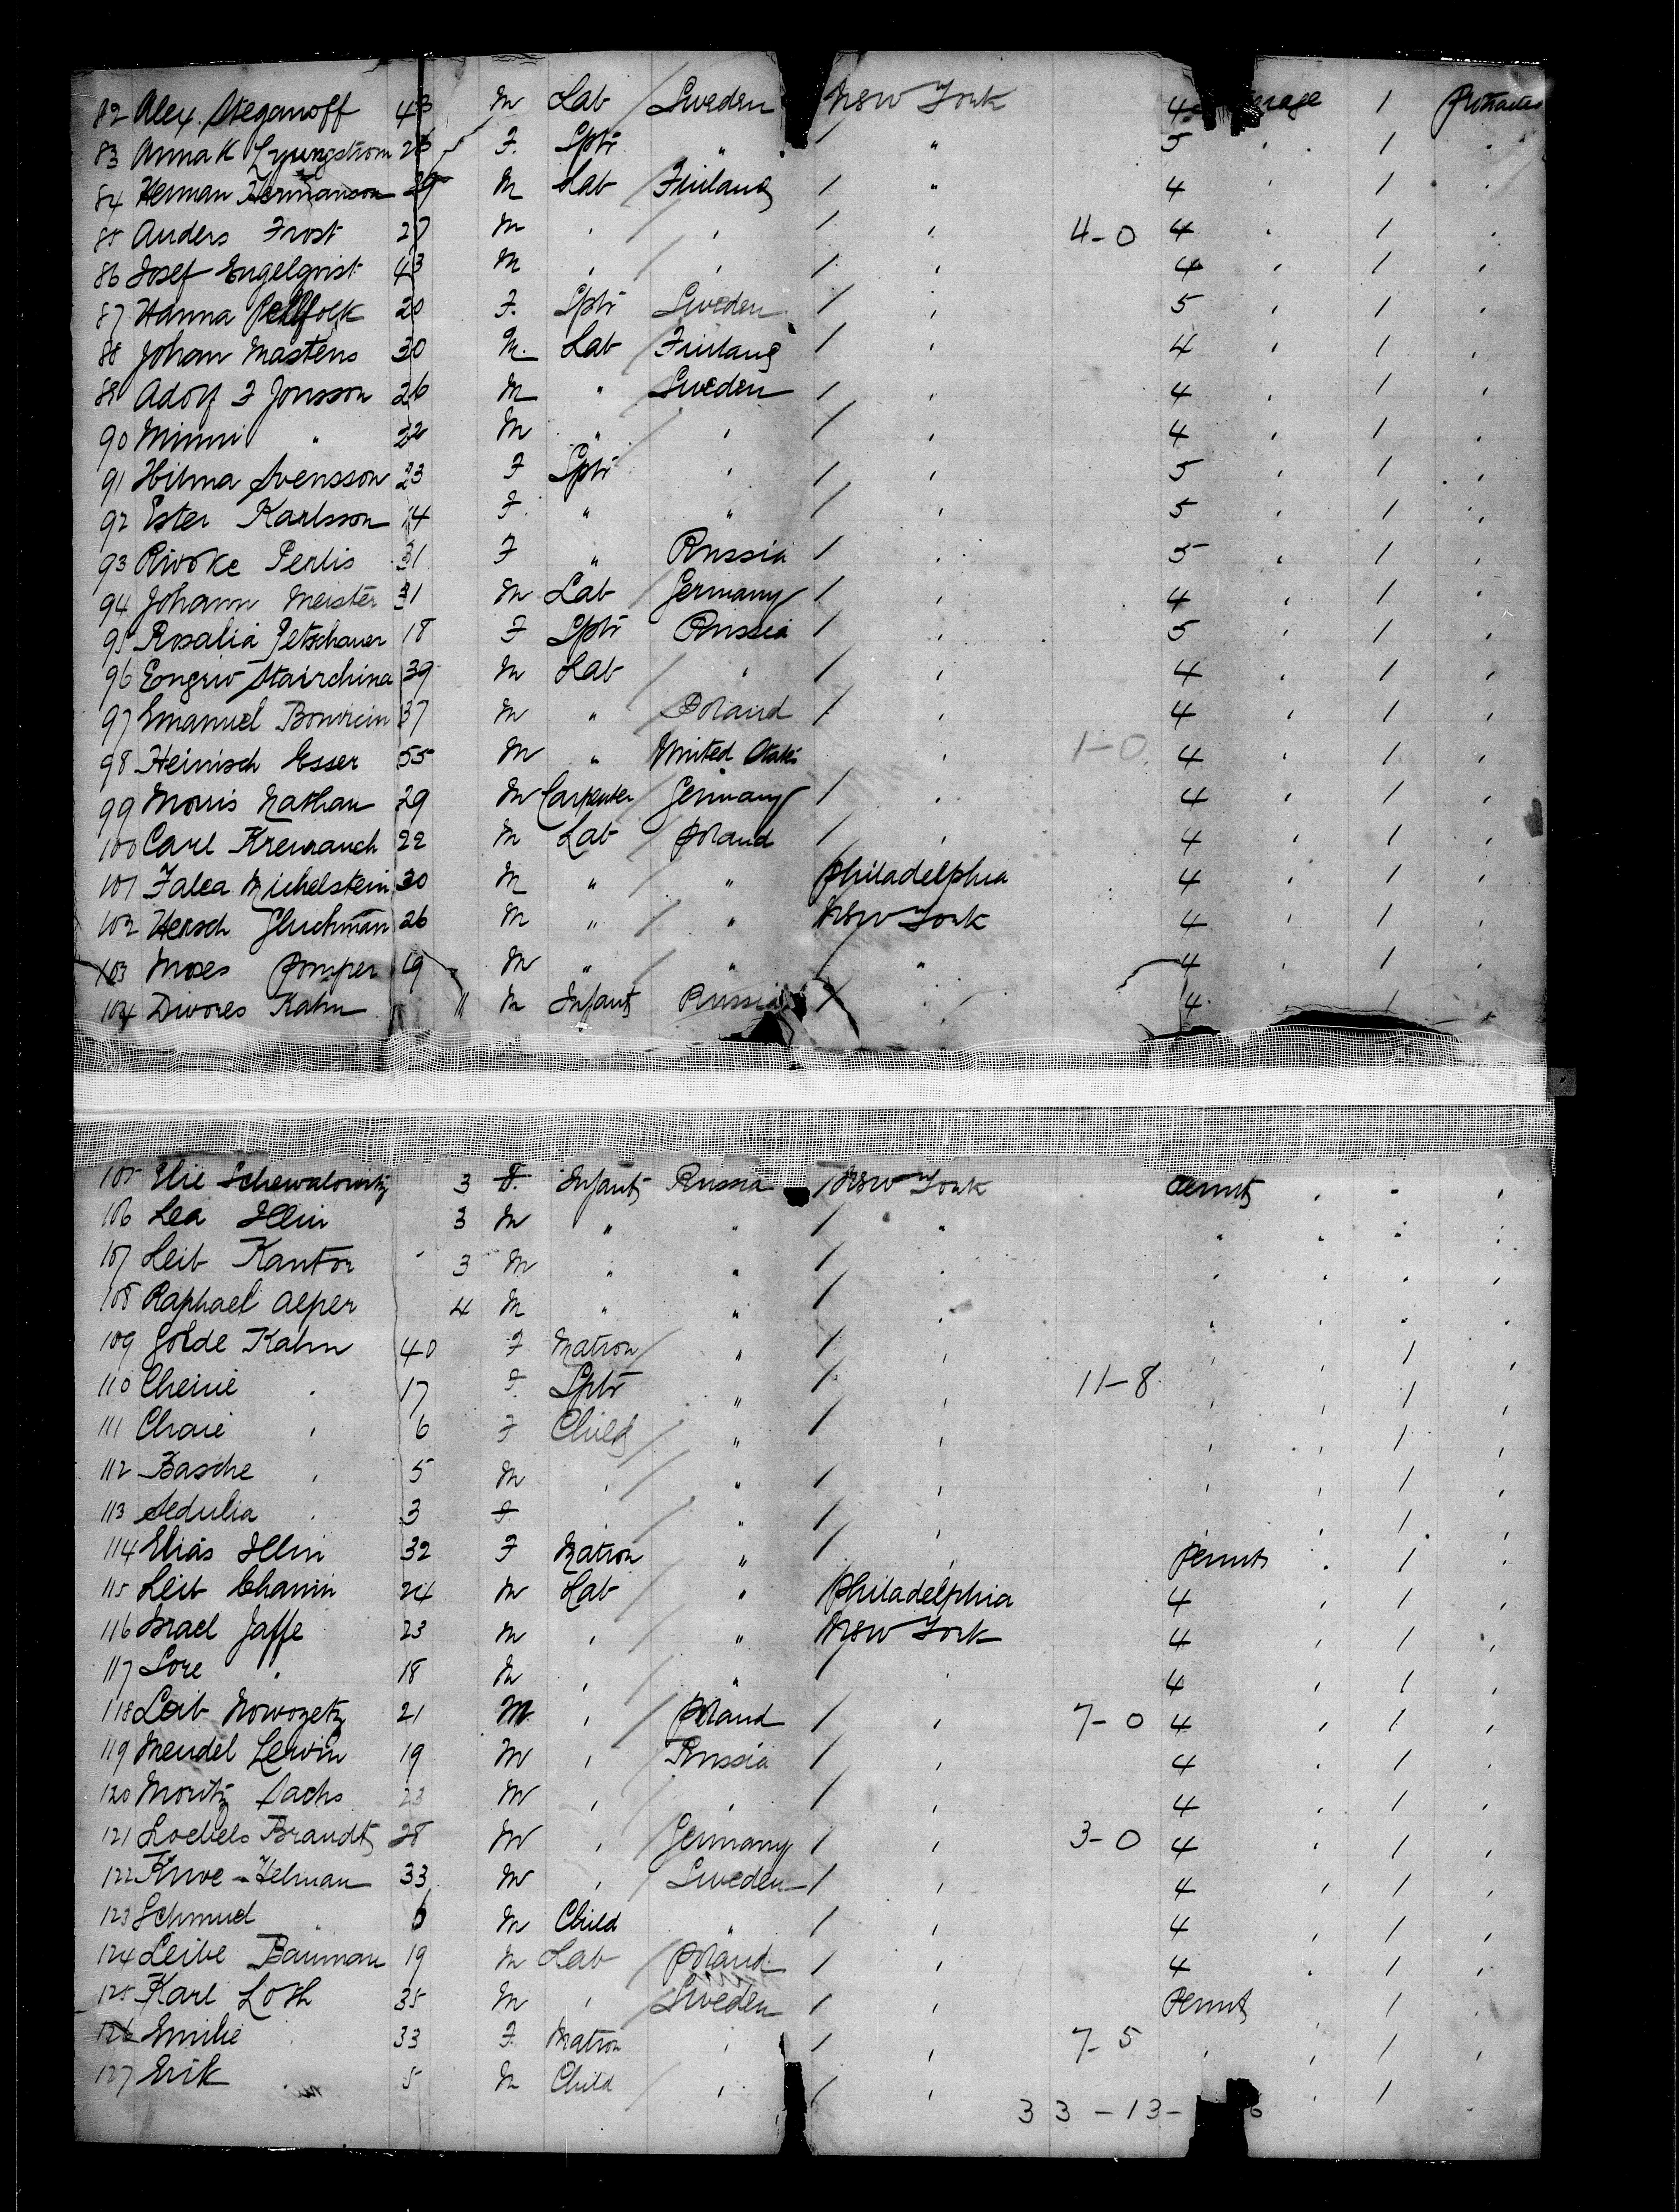 82 Alex. Steganoff 43 M Lab Sweden New York 4 erage 1 Protracted
83 Anna K Lyungstrom 28 F. Sptr " " 5 " 1 "
84 Herman Hermanson 29 M Lab Finland " 4 " 1 "
85 Anders Frost 27 M " " " 4-0 4 " 1 "
86 Josef Engelqvist 43 M " " " 4 " 1 "
87 Hanna Pellfolk 20 F. Sptr Sweden " 5 " 1 "
88 Johan Mastens 30 M. Lab Finland " 4 " 1 "
89 Adolf F Jonsson 26 M " Sweden " 4 " 1 "
90 Minni " 22 M " " " 4 " 1 "
91 Hilma Svensson 23 F Sptr " " 5 " 1 "
92 Ester Karlsson 14 F. " " " 5 " 1 "
93 Riwoke Perlis 31 F " Russia " 5 " 1 "
94 Johann Meister 31 M Lab Germany " 4 " 1 "
95 Rosalia Petschauer 18 F Sptr Russia " 5 " 1 "
96 Stairchina 39 M Lab " " 4 " 1 "
97 Emanuel 37 M " Poland " 4 " 1 "
98 Heinisch Esser 55 M " United States " 1-0 4 " 1 "
99 Morris Nathan 29 M Carpenter Germany " 4 " 1 "
100 Carl Krewrauch 22 M Lab Poland " 4 " 1 "
101 Falea Michelstein 30 M " " Philadelphia 4 " 1 "
102 Hersch Gluchman 26 M " " New York 4 " 1 "
103 Moses Pomper 19 M " " " 4 " 1 "
104 Divores Kahn 11 M Infant Russia " 4 1
105 Elie Schewalowitz 3 F. Infant Russia New York Permit " " "
106 Lea Illin 3 M " " " " " " "
107 Leib Kantor 3 M " " " " " " "
108 Raphael Alper 4 M " " " " " " "
109 Golde Kahn 40 F Matron " " " 1 "
110 Cheine " 17 F. Sptr " " 11-8 " " 1 "
111 Chaie " 6 F Child " " " " 1 "
112 Basche " 5 M " " " " " 1 "
113 Sedulia " 3 F " " " " 1 "
114 Elias Illin 32 F Matron " " Permit " 1 "
115 Leib Chanin 24 M Lab " Philadelphia 4 " 1 "
116 Israel Jaffe 23 M " " New York 4 " 1 "
117 Sore " 18 M " " " 4 " 1 "
118 Leib Nowozetz 21 M " Poland " 7-0 4 " 1 "
119 Mendel Lewin 19 M " Russia " 4 " 1 "
120 Moritz Sachs 23 M " " " 4 " 1 "
121 Loebels Brandt 28 M " Germany " 3-0 4 " 1 "
122 Kiwe Helman 33 M " Sweden " 4 " 1 "
123 Schmuel " 6 M Child " " 4 " 1 "
124 Leibe Bauman 19 M Lab Poland " 4 " 1 "
125 Karl Loth 35 M " Sweden " Permit 1 "
126 Emilie " 33 F. Matron " " 7-5 " " 1 "
127 Erik " 5 M Child " " " 1
33-13- 6